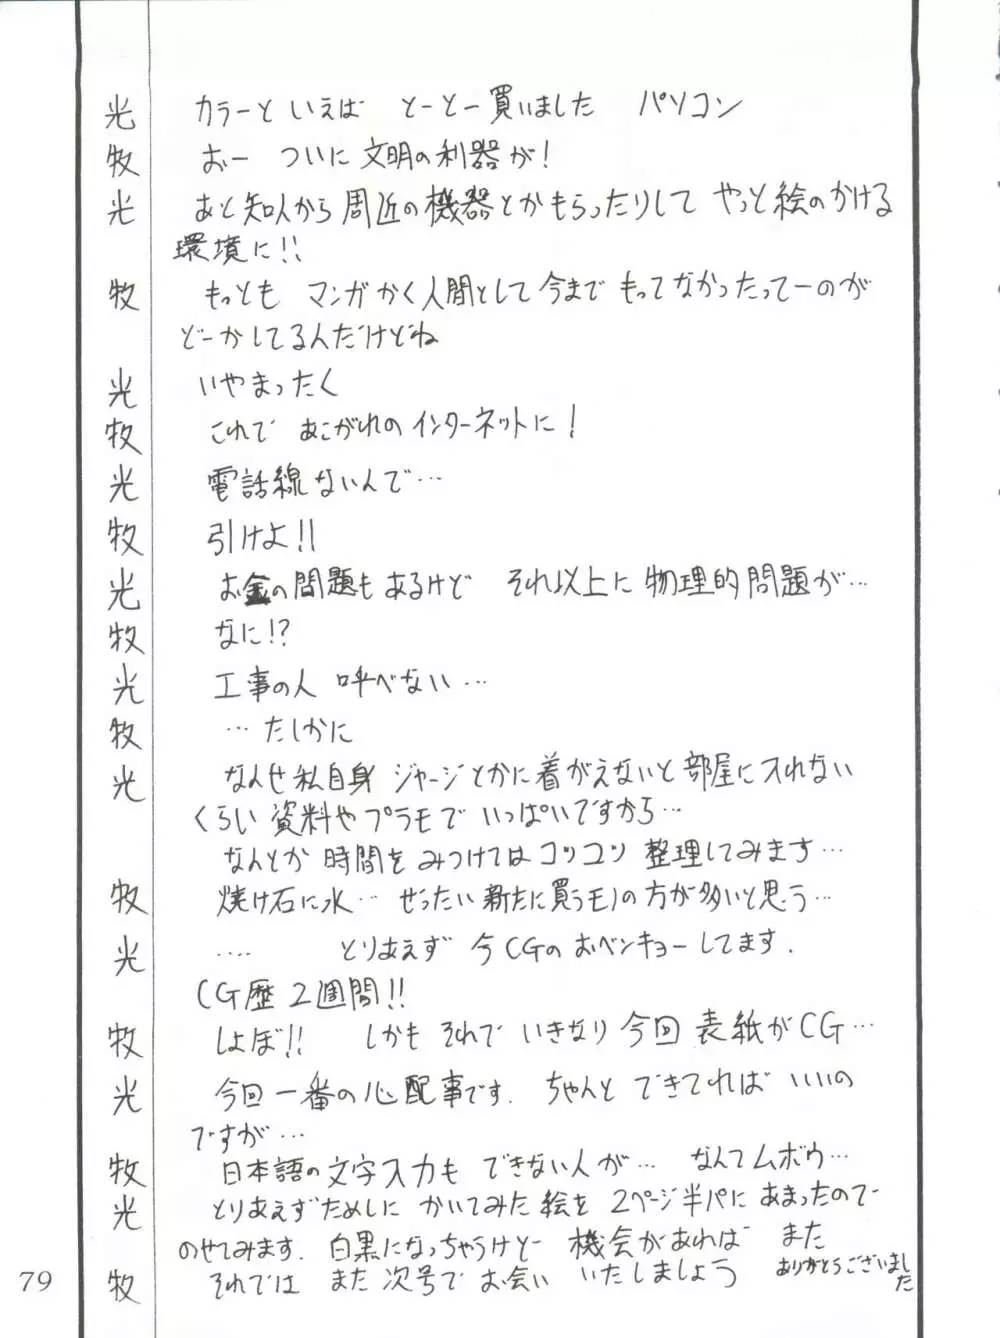 光 カラーと いえば とーとー買いました パソコン
牧 おー ついに 文明の利器が!
光 あと知人から 周辺の機器とかもらったりして やっと絵のかける
環境に!!
牧 もっとも マンガかく人間として今まで もってなかったってーのが
どーかしてるんだけどね
光 いやまったく
牧 これで あこがれのインターネットに!
光 電話線ないんで…
牧 引けよ!!
光 お金の問題もあるけど それ以上に物理的問題が…
牧 なに!?
光 工事の人 呼べない…
牧 …たしかに
光 なんせ私自身 ジャージとかに着がえないと部屋に入れない
くらい資料やプラモで いっぱいですから…
なんとか時間をみつけてはコツコツ 整理してみます…
牧 焼け石に水… ぜったい新たに買うモノの方が多いと思う…
光 …. とりあえず 今CGのおベンキョーしてます.
CG歴2週間!!
牧 しょぼ!! しかも それで いきなり今回 表紙がCG…
光 今回一番の心配事です. ちゃんと できてれば いいの
ですが…
牧 日本語の文字入力も できない人が… なんてムボウ…
光 とりあえずためしに かいてみた絵を 2ページ半パにあまったので
のせてみます. 白黒になっちゃうけどー 機会があれば また
牧 それでは また次号で お会い いたしましょう ありがとうございまし
た
79